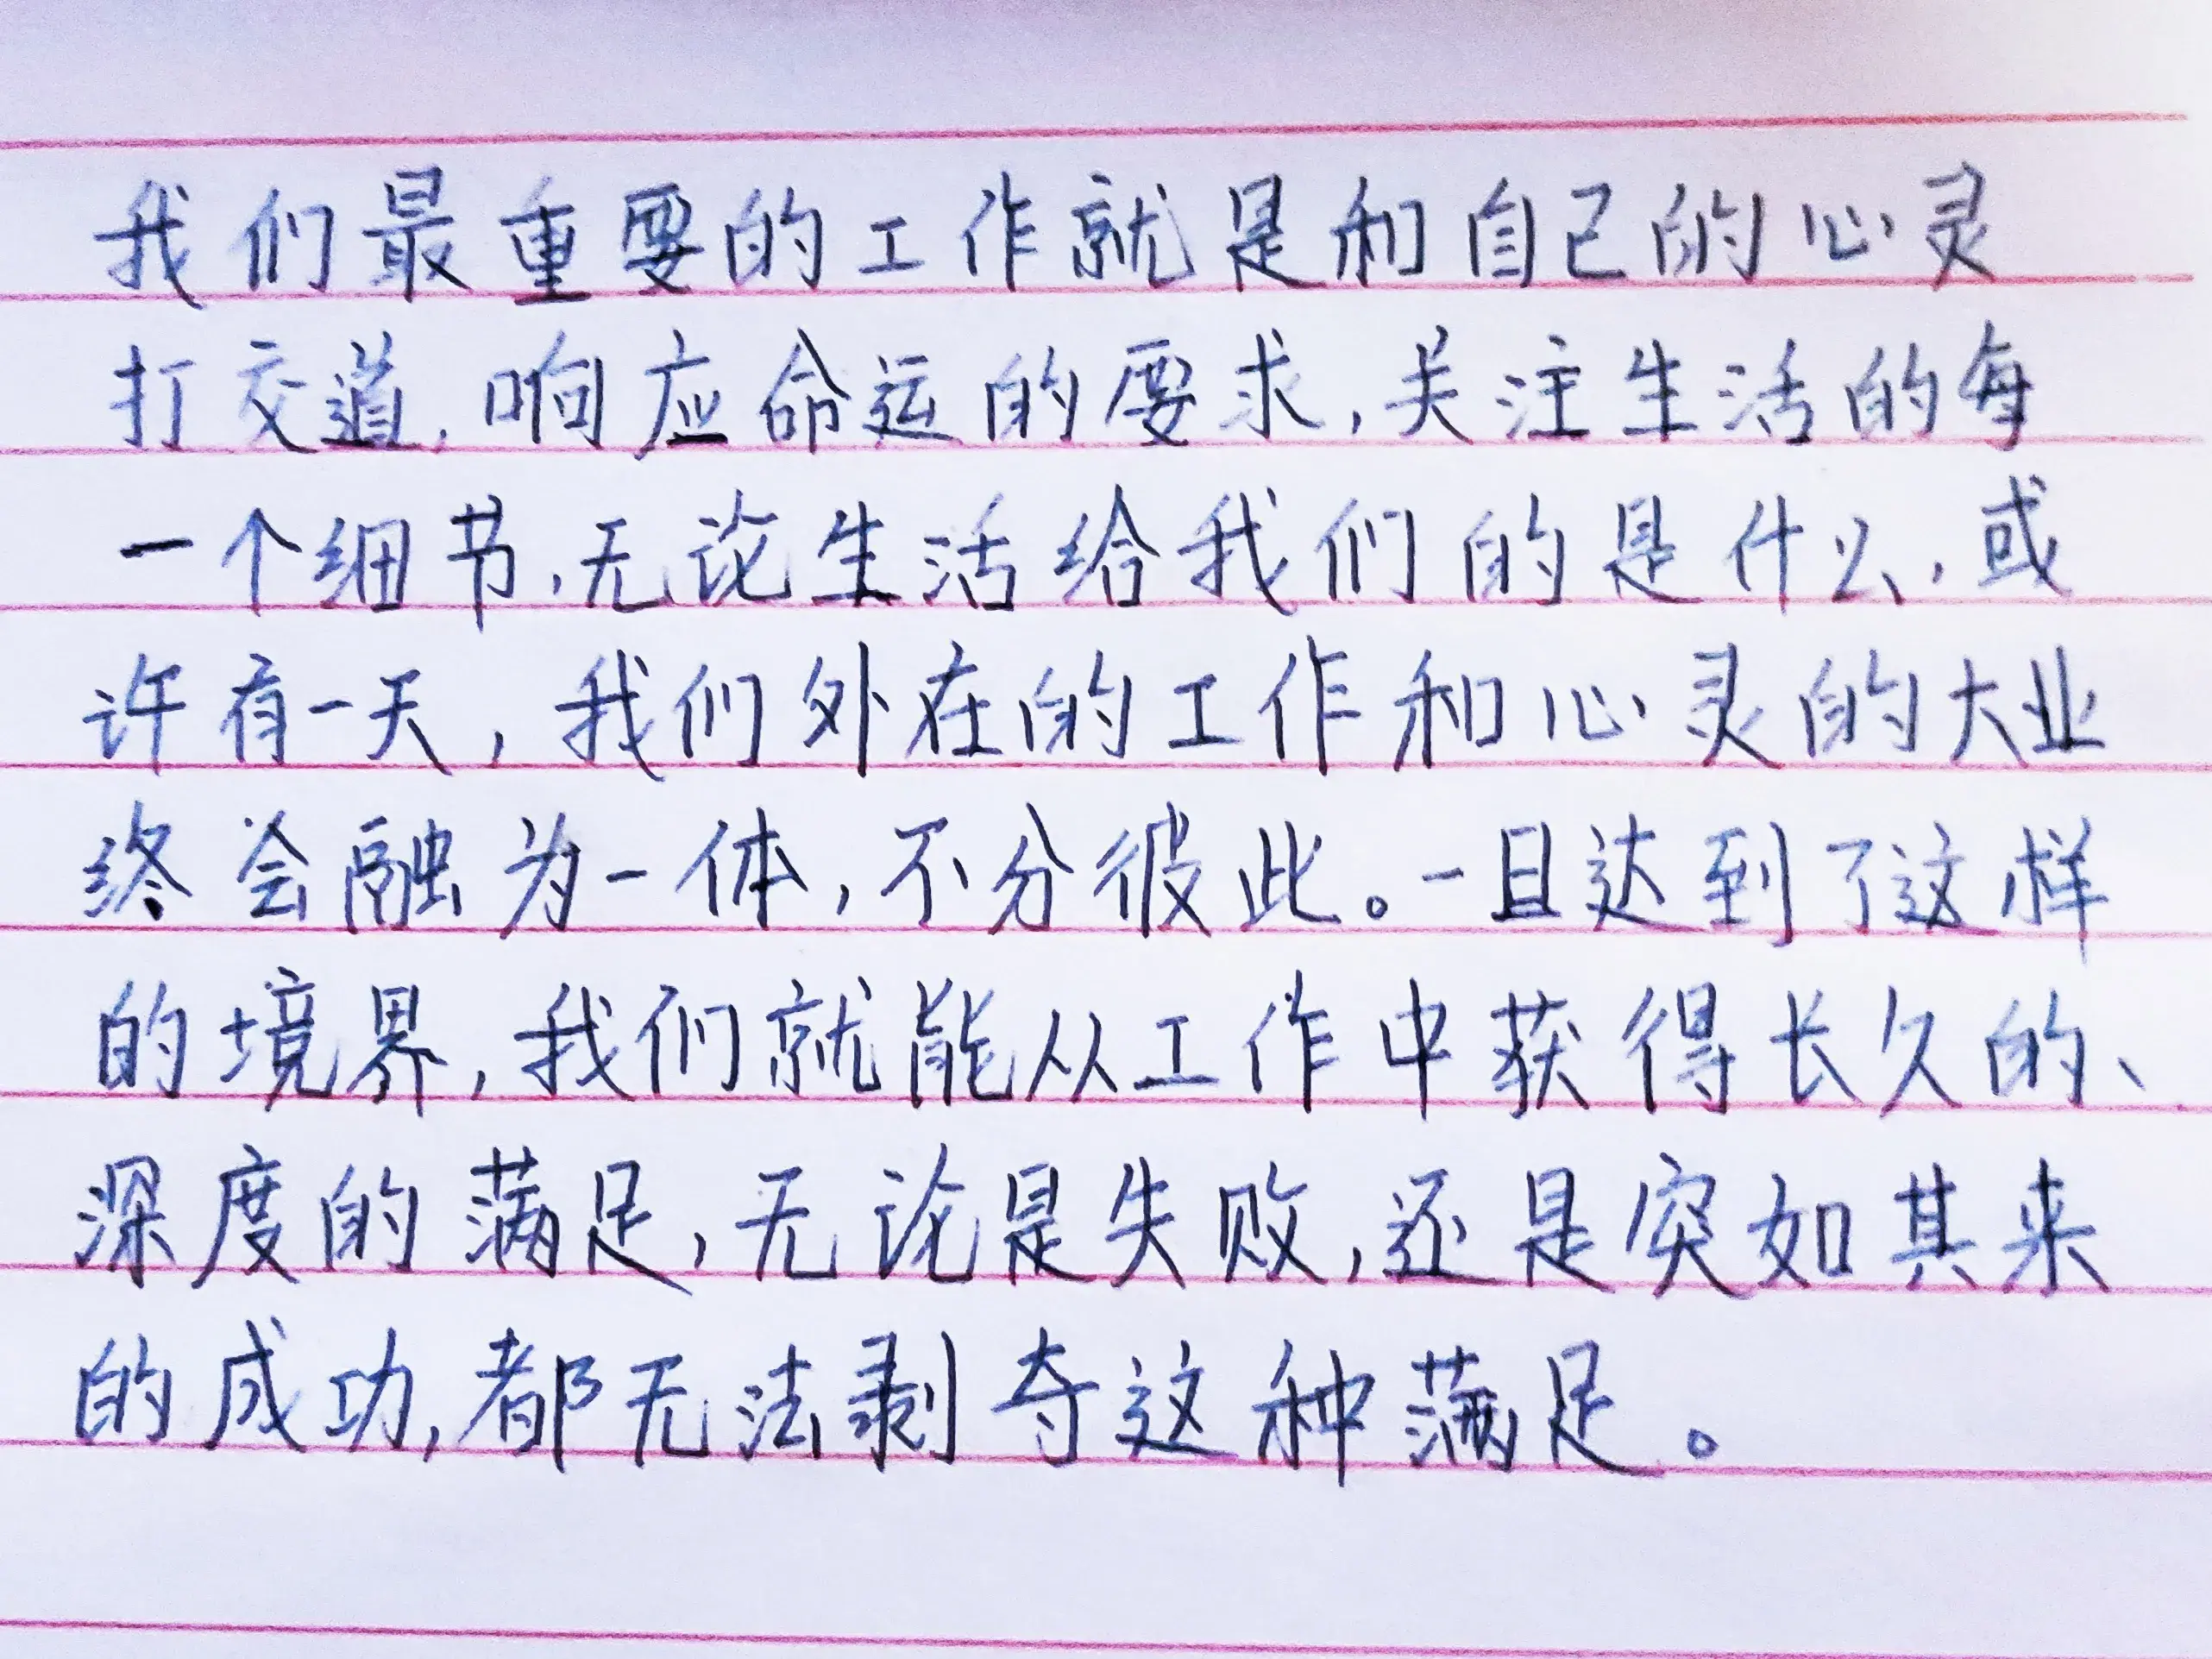 我们最重要的工作就是和自己的心灵
打交道,响应命运的要求,关注生活的每
一个细节,无论生活给我们的是什么,或
许有一天,我们外在的工作和心灵的大业
终会融为一体,不分彼此。一旦达到了这样
的境界,我们就能从工作中获得长久的、
深度的满足,无论是失败,还是突如其来
的成功,都无法剥夺这种满足。